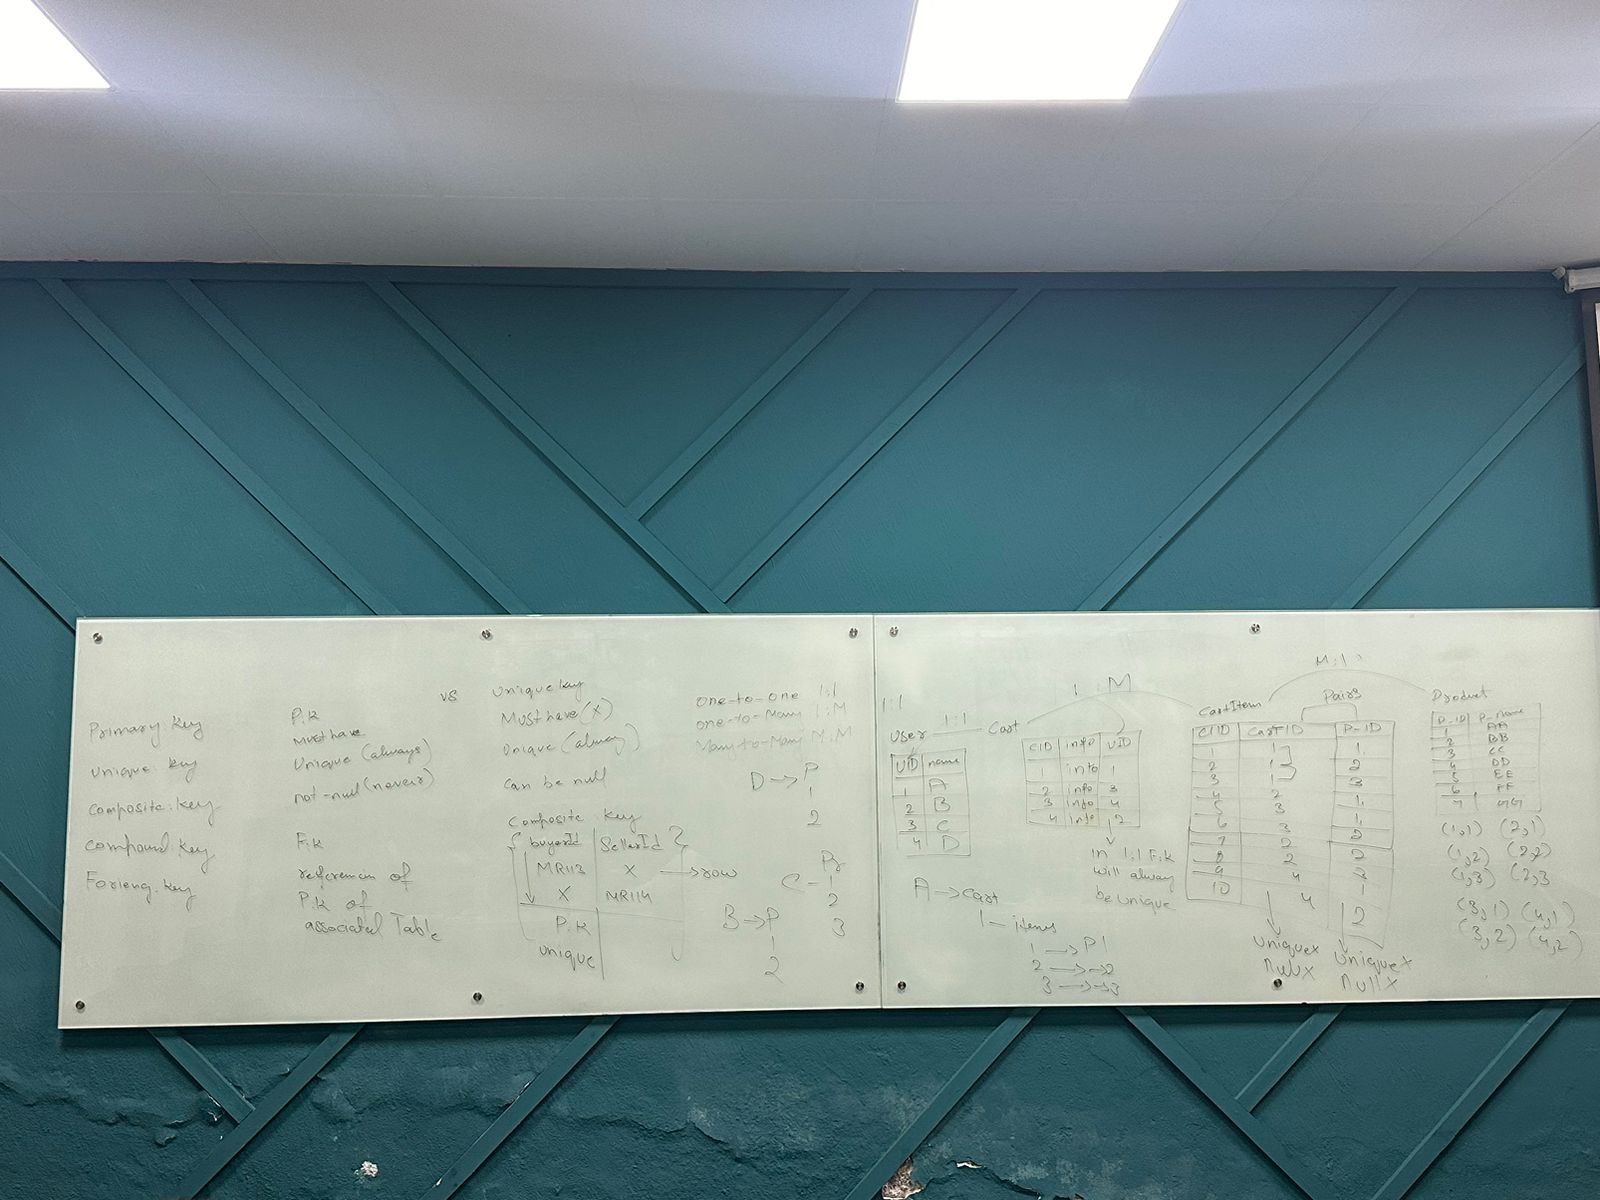 Primary Key
Unique Key
Composite Key
Compound Key
Forieng Key
P.K
Must have
Unique (always)
not-null (never)
F.K
P.K of
associated Table
vs
Unique key
Must have (X)
Unique (alway)
Can be null
Composite Key
{ buyerId | SellerId }
MR113 X → row
X MR114
P.K
Unique
One-to-one 1:1
One-to-Many 1:M
Many-to-Many M:M
D → P
1
2
C - 1
2
3
B → P
1
2
1:1
User 1:1 Cart
UID name
1 A
2 B
3 C
4 D
A → Cart
1 - items
1 → P1
2 → 2
3 → 3
1:M
CID info UID
1 info 1
2 info 3
3 info 4
4 info 2
in 1:1 F.K
will alway
be Unique
M:1
CartItem
Pairs
CIID CartID P-ID
1 1 1
2 1 2
3 1 3
4 2 1
5 3 1
6 3 2
7 2 2
8 2 3
9 4 1
10 4 2
Unique X
Null X
Unique X
Null X
Product
P-ID P-name
1 AA
2 BB
3 CC
4 DD
5 EE
6 FF
7 GG
(1,1) (2,1)
(1,2) (2,2)
(1,3) (2,3
(3,1) (4,1)
(3,2) (4,2)